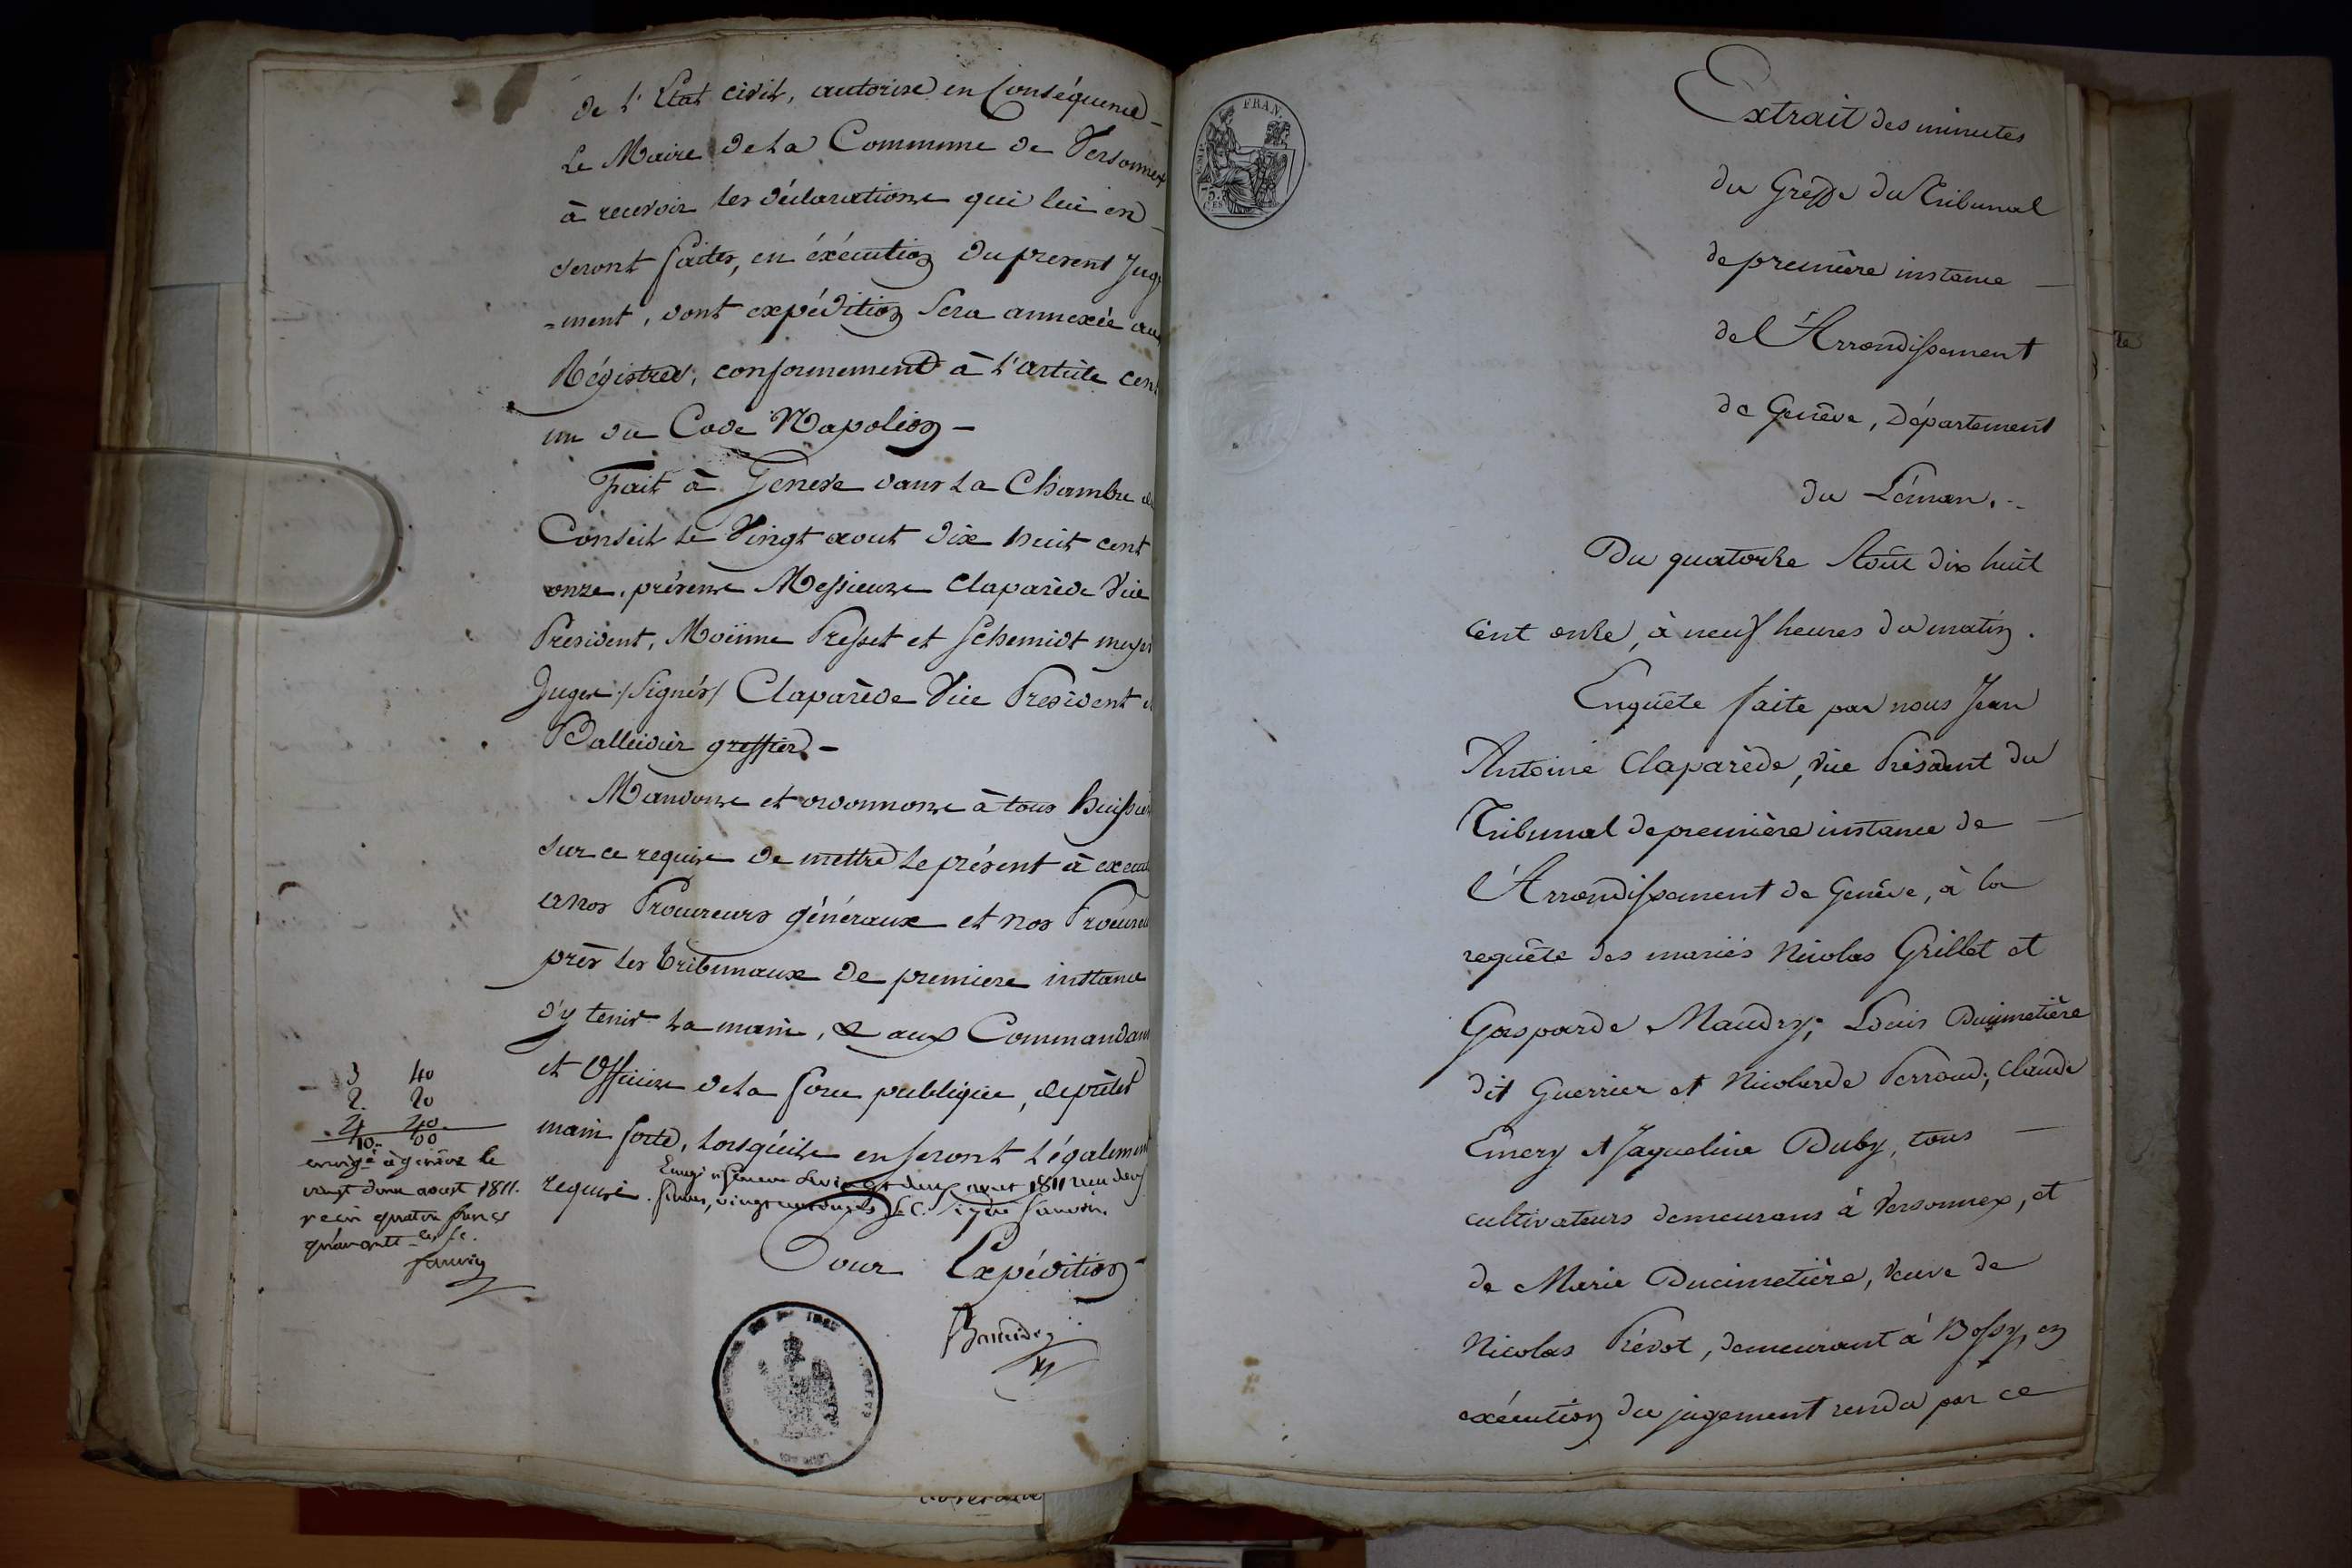 de l'Etat civil, autorise en Conséquence
Le Maire de la Commune de Versonnex
à recevoir les déclarations qui lui en
seront faites, en éxécution du present Juge
-ment, dont expédition sera annexée aux
Régistres, conformement à l'article cent
un du Code Napoléon -
Fait à Geneve dans la Chambre du
Conseil le Vingt aout dix huit cent
onze, présens Messieurs Claparède Vice
President, Moïnne Presset et Schemidt
Juges /Signés/ Claparède Vice President et
greffier. -
Mandons et ordonnons à tous huissiers
sur ce requis de mettre le présent à execut
à nos Procureurs généraux et nos Procureurs
près les tribunaux de premiere instance
d'y tenir la main, & aux Commandans
et Officiers de la force publique, de prêter
main forte, lorsqu'ils en seront légalement
requis. Enregé à Geneve le vingt deux aout 1811 reçu deux
francs, vingt centimes S.C. Signé
Pour Expédition
3 40
2. 20
4 40
10.. 00
enregé à genève le
vingt deux aoust 1811.
reçu quatre francs
quarante ces s.c.
FRAN.
EMP.
75.
CES
Extrait des minutes
du Greffe du Tribunal
de première instance
de l'Arrondissement
de Genève, Département
du Léman. -
Du quatorze Août dix huit
cent onze, à neuf heures du matin.
Enquête faite par nous Jean
Antoine Claparède, vice Président du
Tribunal de première instance de
l'Arrondissement de Genève, à la
requête des mariés Nicolas Grillet et
Gasparde Maudry; Louis Ducimetière
dit Guerrier et Nicolarde Perroud; Claude
Emery et Jaqueline Duby, tous
cultivateurs demeurans à Versonnex, et
de Marie Ducimetière, veuve de
Nicolas Prévot, demeurant à Bossy, en
exécution du jugement rendu par ce